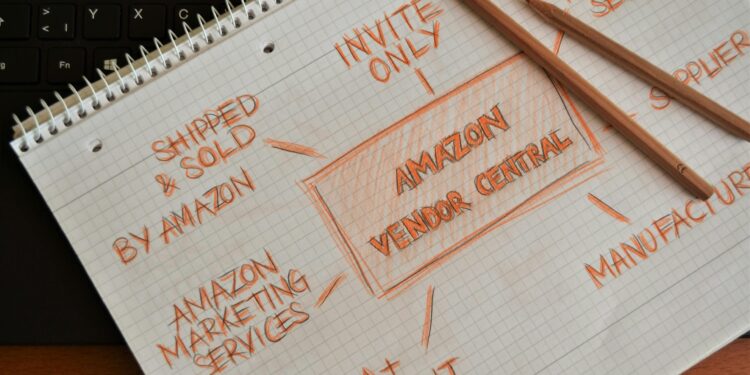 INVITE
ONLY
SUPPLIER
SHIPPED
& SOLD
BY AMAZON
AMAZON
VENDOR CENTRAL
MANUFACTURE
AMAZON
MARKETING
SERVICES
A+
Y
X
C
Fn